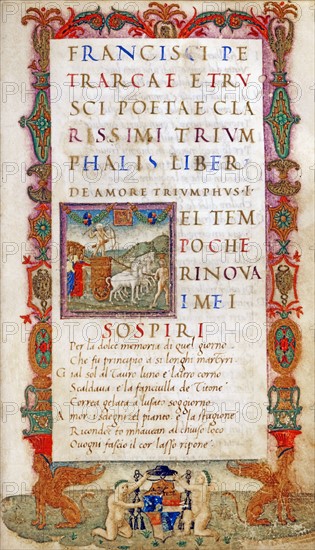 FRANCISCI PE
TRARCAE ETRV
SCI POETAE CLA
RISSIMI TRIVM
PHALIS LIBER
DE AMORE TRIVMPHVS·I·
EL TEM
PO CHE
RINOVA
I MEI
SOSPIRI
Per la dolce memoria di quel giorno
Che fu principio a si longhi martyri
Gia l sol al Tauro luno e laltro corno
Scaldava e la fanciulla de Titone
Correa gelata a lusato soggiorno
Amor i sdegni el pianto e la stagione
Ricondoc to mhavean al chiuso loco
Ovogni fascio il cor lasso ripone